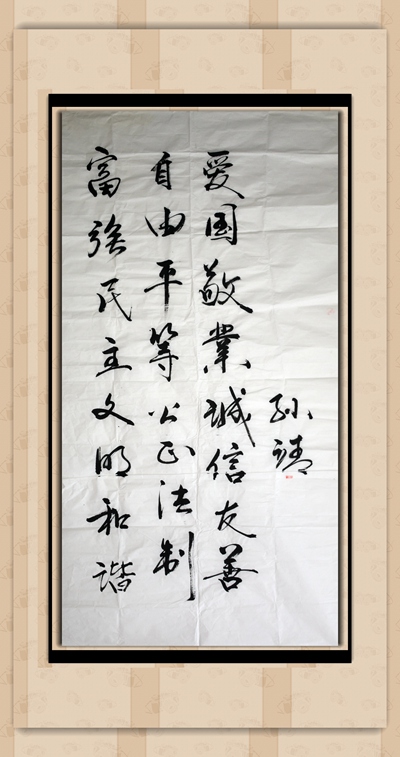 富强民主文明和谐
自由平等公正法制
爱国敬業诚信友善
孙靖